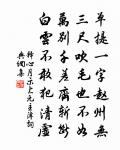 單提一字趙州無
三尺吹毛也不如
萬別千差齊斬斷
白雲不敢犯清虛
釋心月示史大